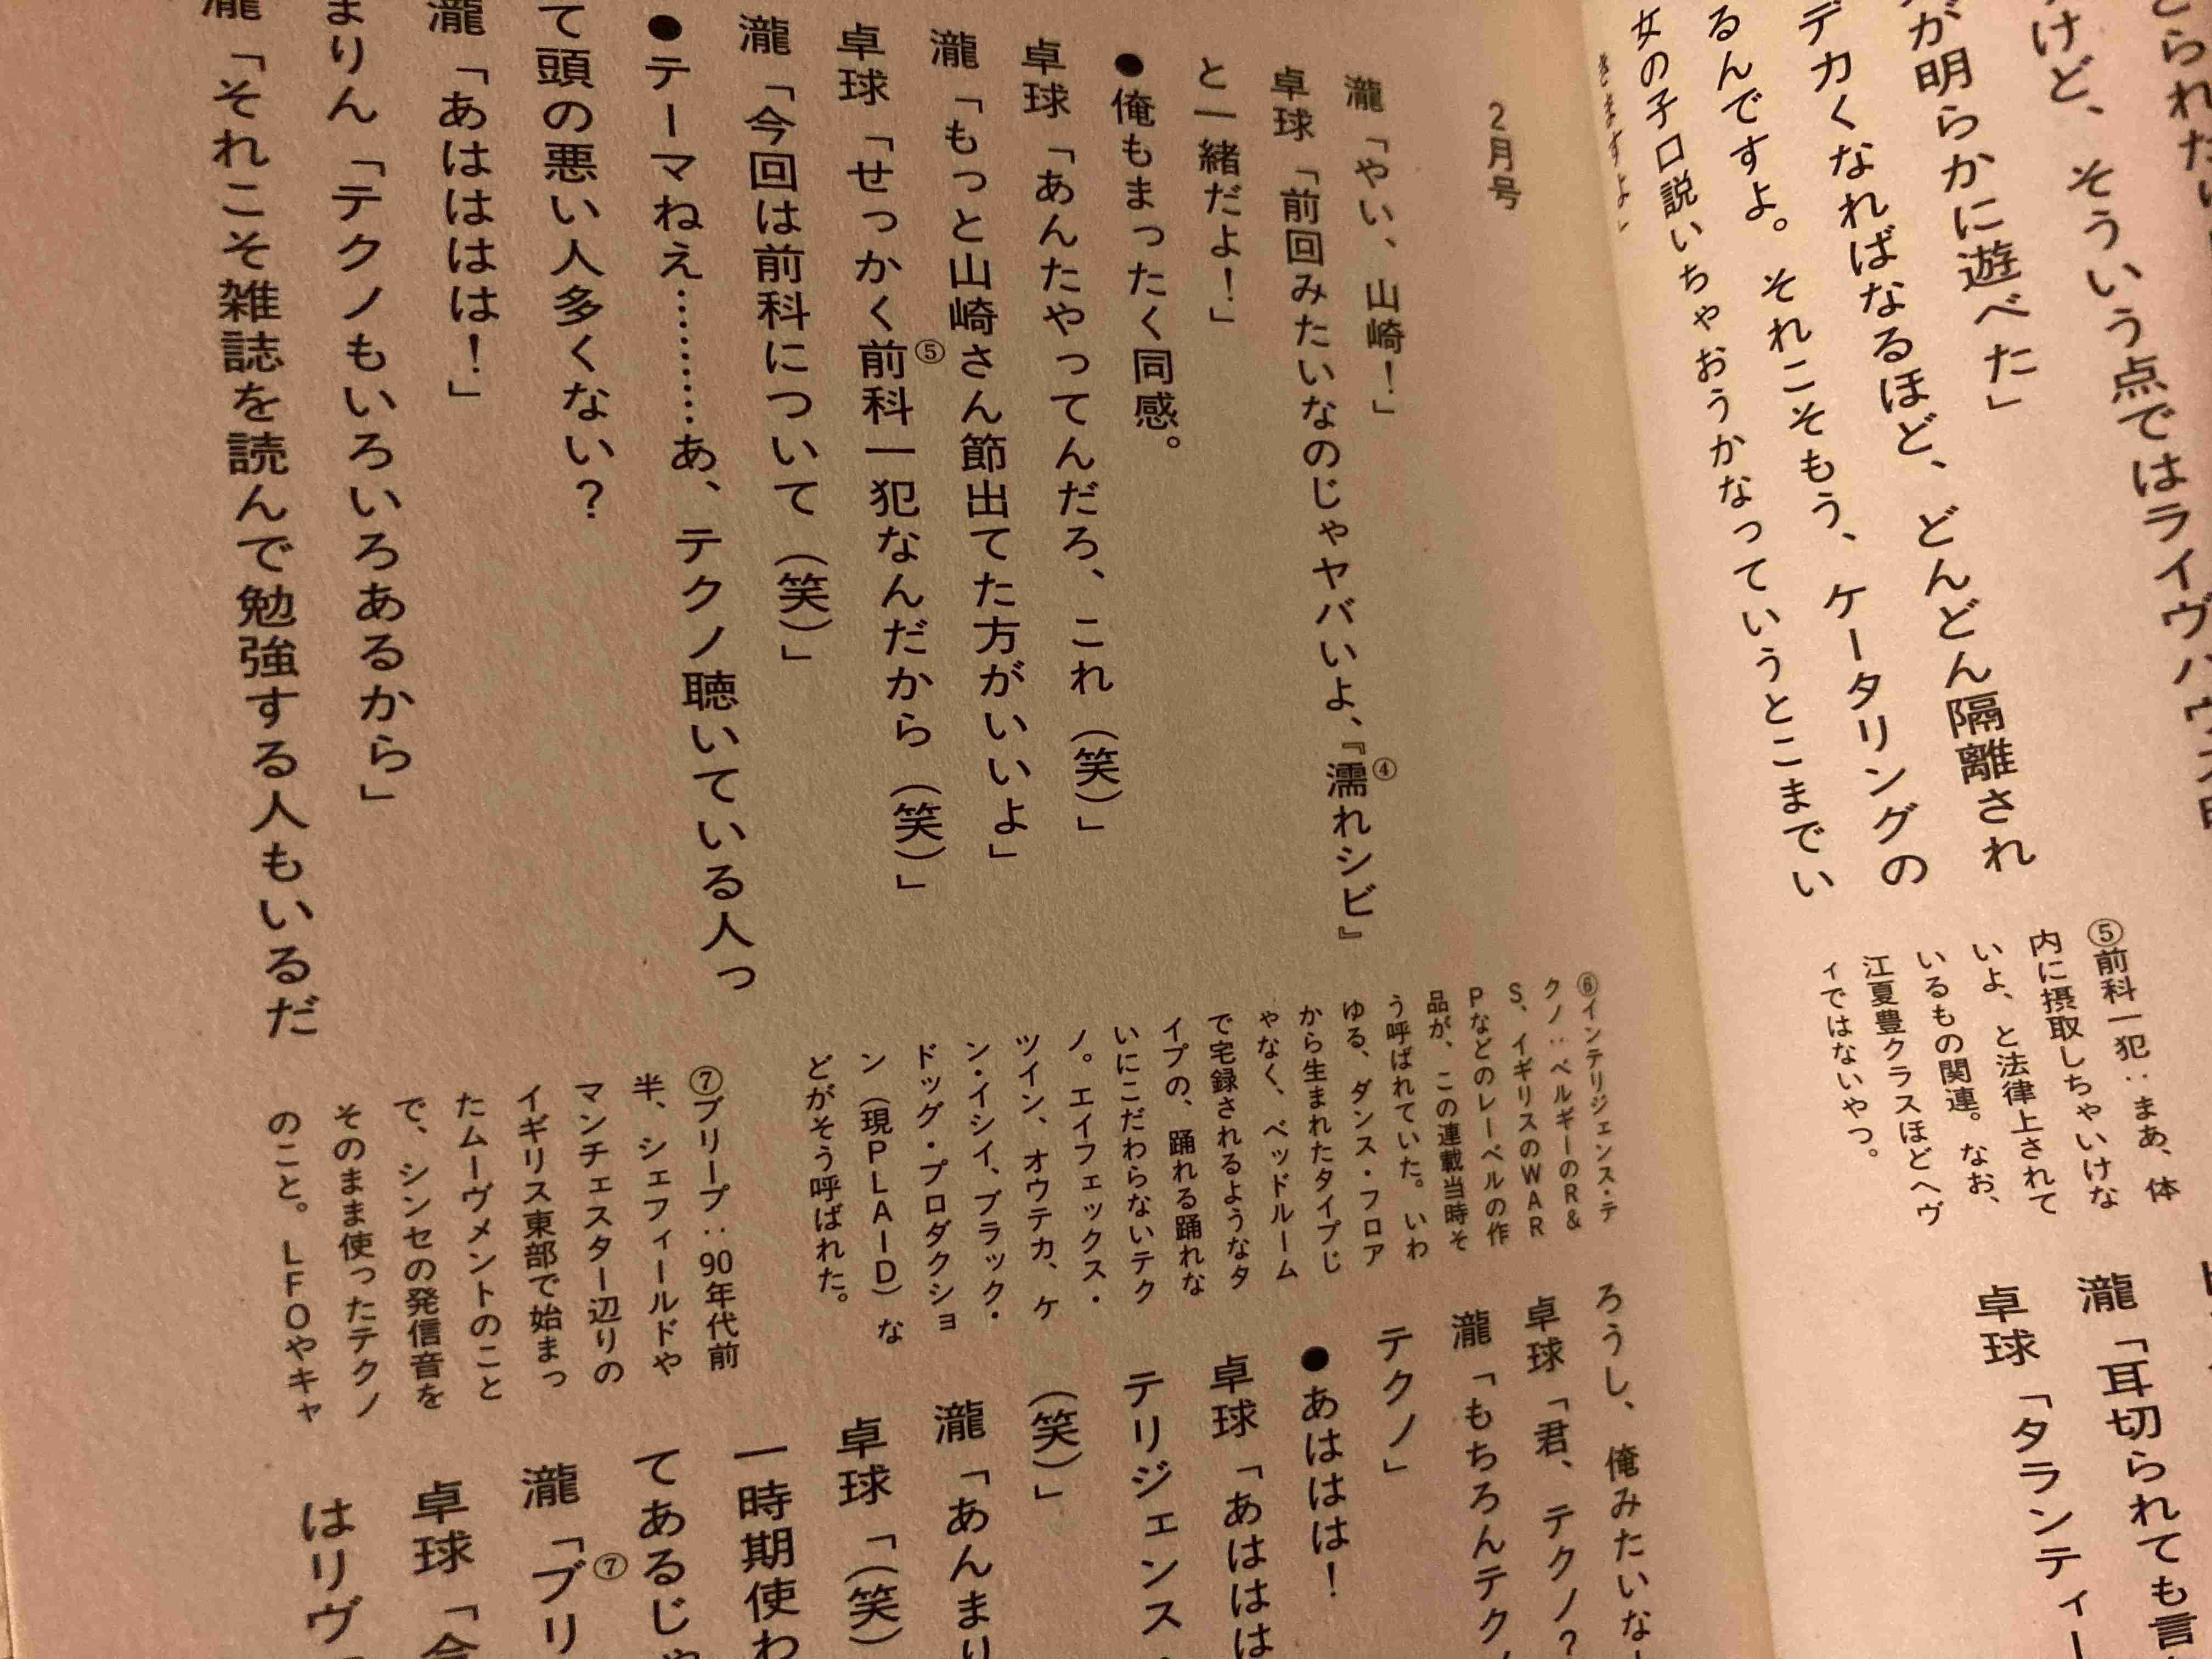 けど、そういう点ではライヴハウス
が明らかに遊べた」
デカくなればなるほど、どんどん隔離され
るんですよ。それこそもう、ケータリングの
女の子口説いちゃおうかなっていうとこまでい
きますよ」
⑤前科一犯：まあ、体
内に摂取しちゃいけな
いよ、と法律上されて
いるもの関連。なお、
江夏豊クラスほどヘヴ
ィではないやつ。
瀧「耳切られても言
卓球「タランティー
2月号
瀧「やい、山崎！」
卓球「前回みたいなのじゃヤバいよ、『濡れシビ』④
と一緒だよ！」
●俺もまったく同感。
卓球「あんたやってんだろ、これ（笑）」
瀧「もっと山崎さん節出てた方がいいよ」
卓球「せっかく前科一犯なんだから（笑）」⑤
瀧「今回は前科について（笑）」
●テーマねえ………あ、テクノ聴いている人っ
て頭の悪い人多くない？
瀧「あはははは！」
まりん「テクノもいろいろあるから」
瀧「それこそ雑誌を読んで勉強する人もいるだ
⑥インテリジェンス・テ
クノ：ベルギーのR&
S、イギリスのWAR
Pなどのレーベルの作
品が、この連載当時そ
う呼ばれていた。いわ
ゆる、ダンス・フロア
から生まれたタイプじ
ゃなく、ベッドルーム
で宅録されるようなタ
イプの、踊れる踊れな
いにこだわらないテク
ノ。エイフェックス・
ツイン、オウテカ、ケ
ン・イシイ、ブラック・
ドッグ・プロダクショ
ン（現PLAID）な
どがそう呼ばれた。
⑦ブリープ：90年代前
半、シェフィールドや
マンチェスター辺りの
イギリス東部で始まっ
たムーヴメントのこと
で、シンセの発信音を
そのまま使ったテクノ
のこと。LFOやキャ
ろうし、俺みたいな
卓球「君、テクノ？
瀧「もちろんテクノ
テクノ」
●あははは！
卓球「あははは
テリジェンス・
（笑）」
瀧「あんまり
卓球「（笑）
一時期使わ
てあるじゃ
瀧「ブリ⑦
卓球「今
はリヴ